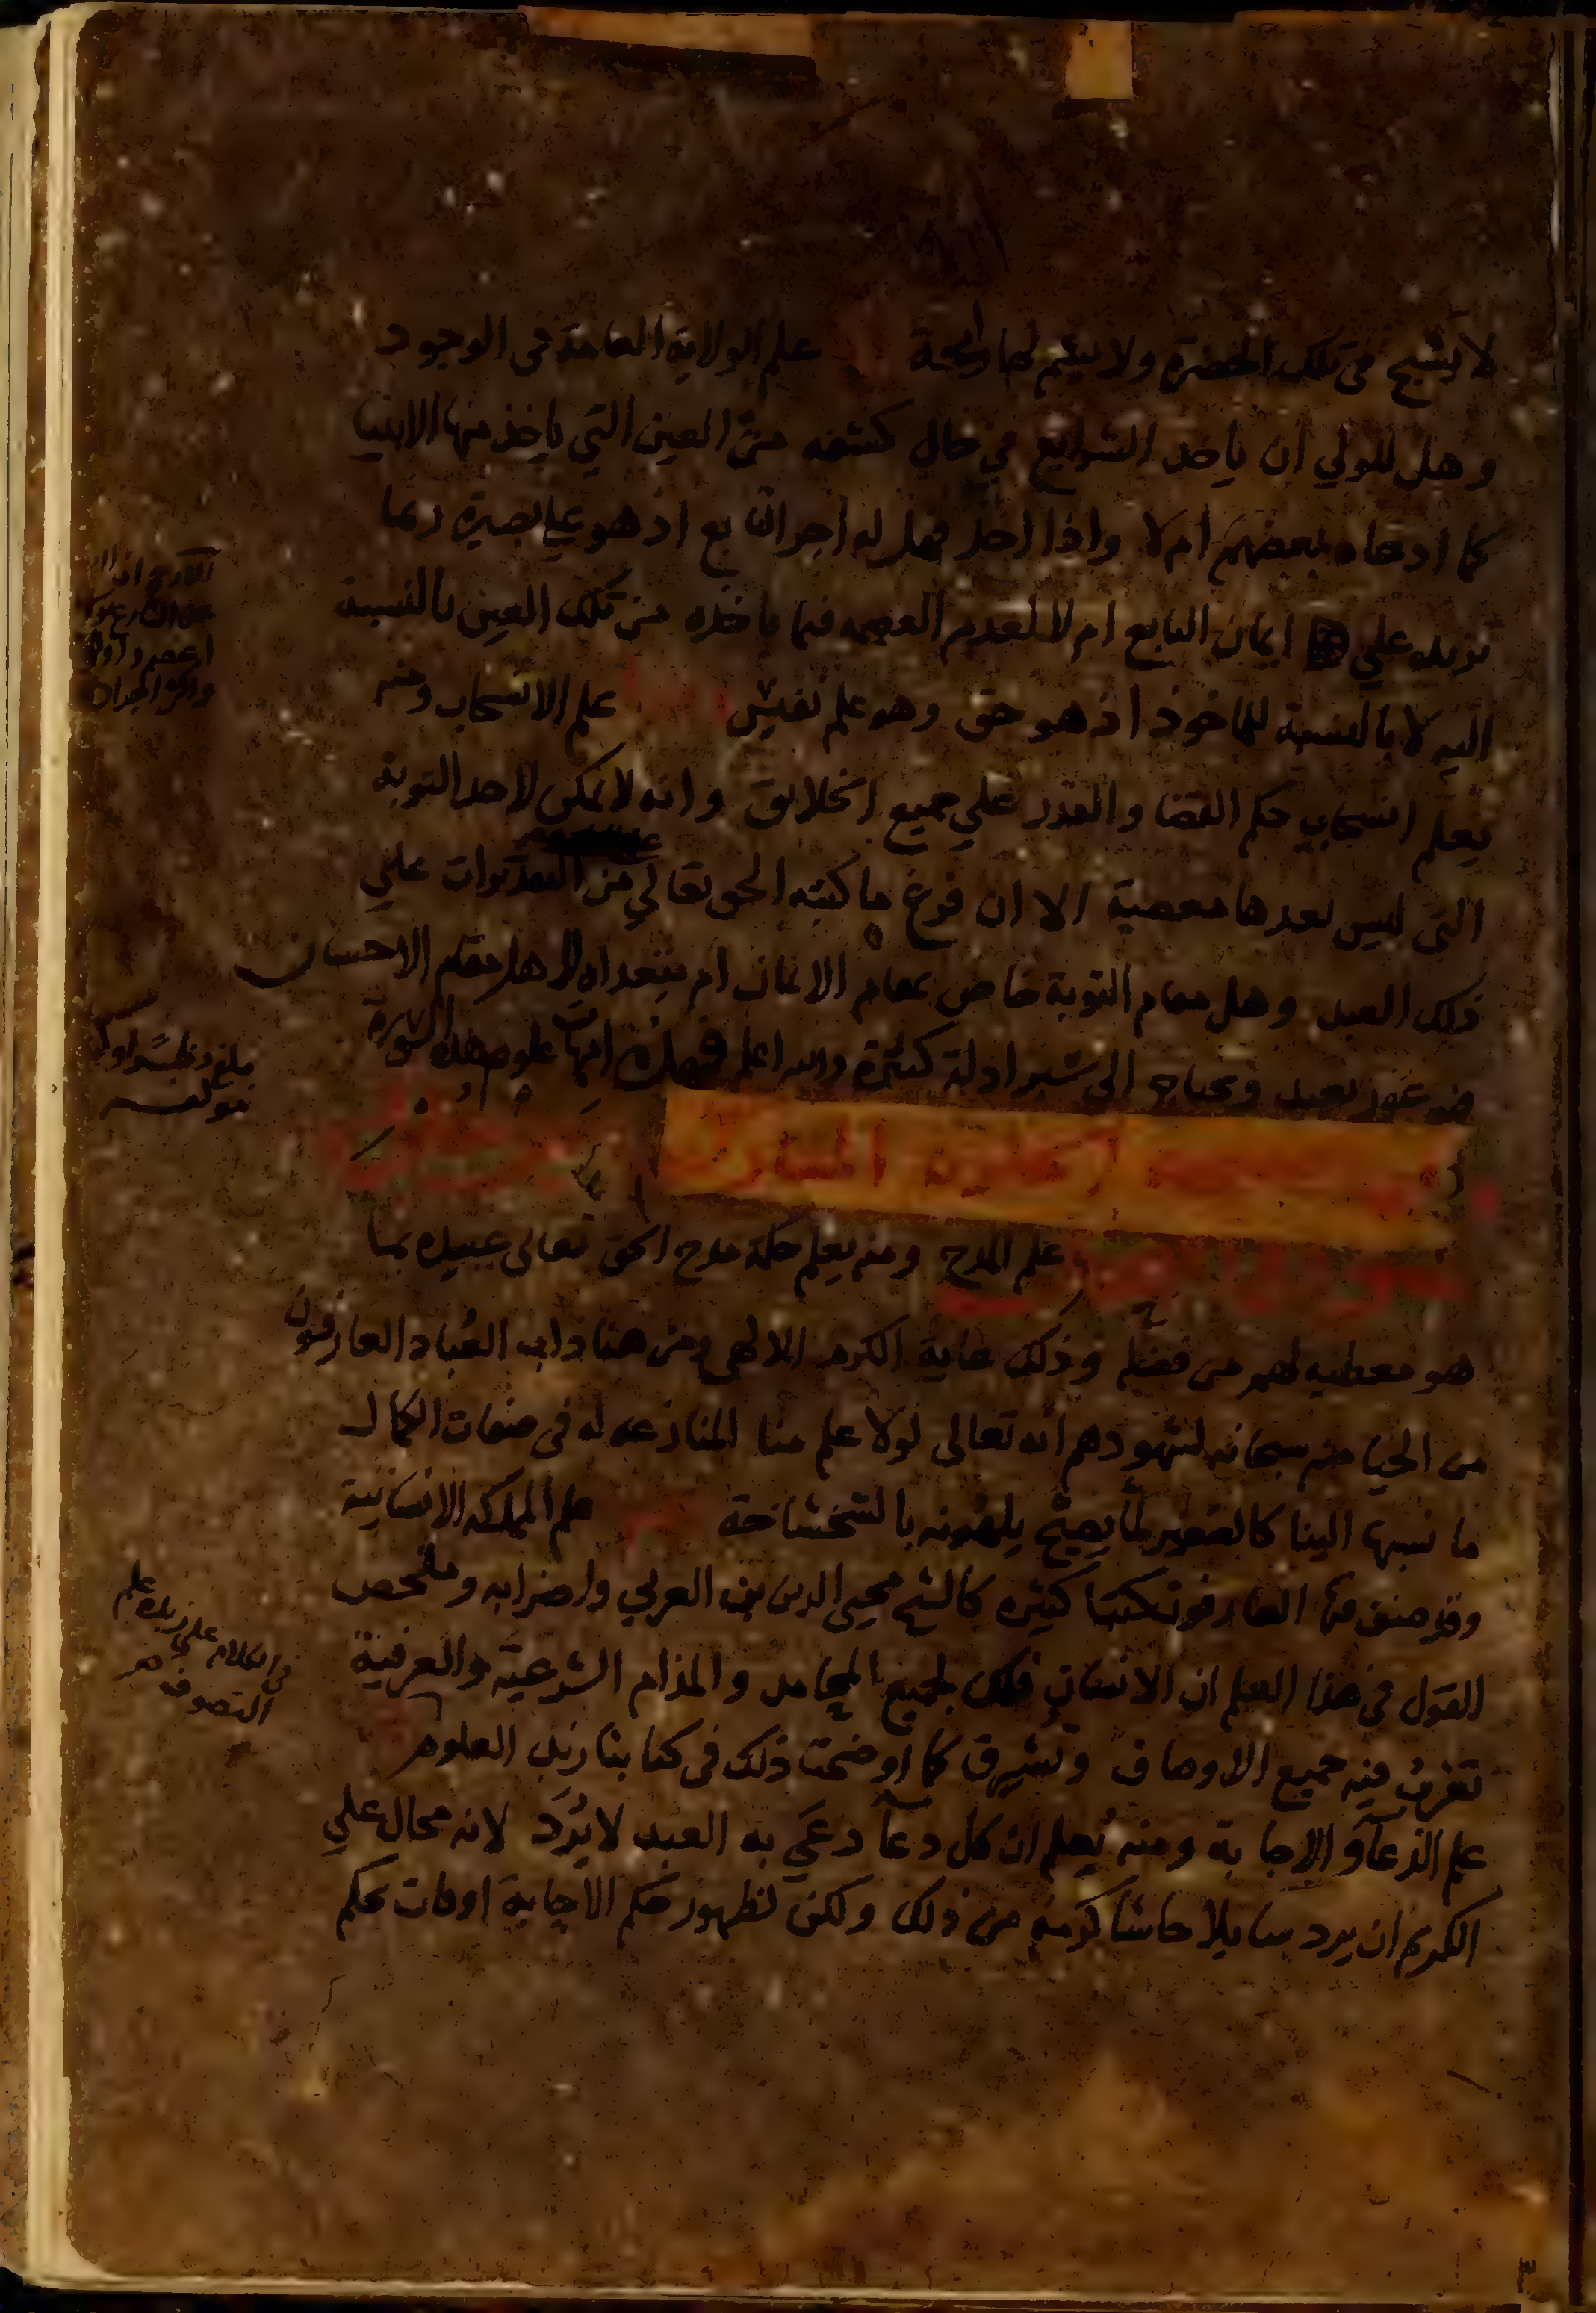 لا يشبح في تلك الحضرة ولا يشم لها رايحة علم الولاية العامة في الوجود
وهل للولي ان ياخذ الشرايع في حال كشفه من العين التي ياخذ منها الانبيا
كما ادعاه بعضهم ام لا واذا اخذ فهل له اجر التابع اذ هو علي بصيرة ربما
تزيد علي ايمان التابع ام لا لعدم العصمه فيما ياخذه من تلك العين بالنسبة
اليه لا بالنسبة للماخوذ اذ هو حق وهو علم نفيس علم الانسحاب ومنه
يعلم انسحاب حكم القضا والقدر علي جميع الخلايق وانه لا يمكن لاحد التوبة
التي ليس بعدها معصية الا ان فرغ ما كتبه الحق تعالي من المقدورات علي
ذلك العبد وهل مقام التوبة خاص بمقام الايمان ام يتعداه لاهل مقام الاحسان
فيه غور بعيد ويحتاج الى سبر ادلة كثيرة والله اعلم فهذه امهات علوم هذه السورة
علم المدح ومنه يعلم حكمة مدح الحق تعالى عبيده بما
هو معطيه لهم من فضله وذلك غاية الكرم الالهي ومن هنا ذاب العُباد العارفون
من الحيا منه سبحانه لشهودهم انه تعالى لولا علم منا المنازعه له في صفات الكمال
ما نسبها الينا كالصغير لما يصيح يلهونه بالشخشاخة علم المملكه الانسانية
وقد صنف فيها العارفون كتبا كثيره كالشيخ محيي الدين بن العربي واضرابه وملخص
القول في هذا العلم ان الانسان فلك لجميع المحامد والمذام الشرعية والعرفية
تغرب فيه جميع الاوصاف وتشرق كما اوضحت ذلك في كتابنا زبد العلوم
علم الدعآ والاجابة ومنه يُعلم ان كل دعآ دعَي به العبد لا يُرَد لانه محال علي
الكريم ان يرد سايلا حاشا كرمه من ذلك ولكن لظهور حكم الاجابة اوقات بحكم
في الكلام علي زبدة علم
التصوف